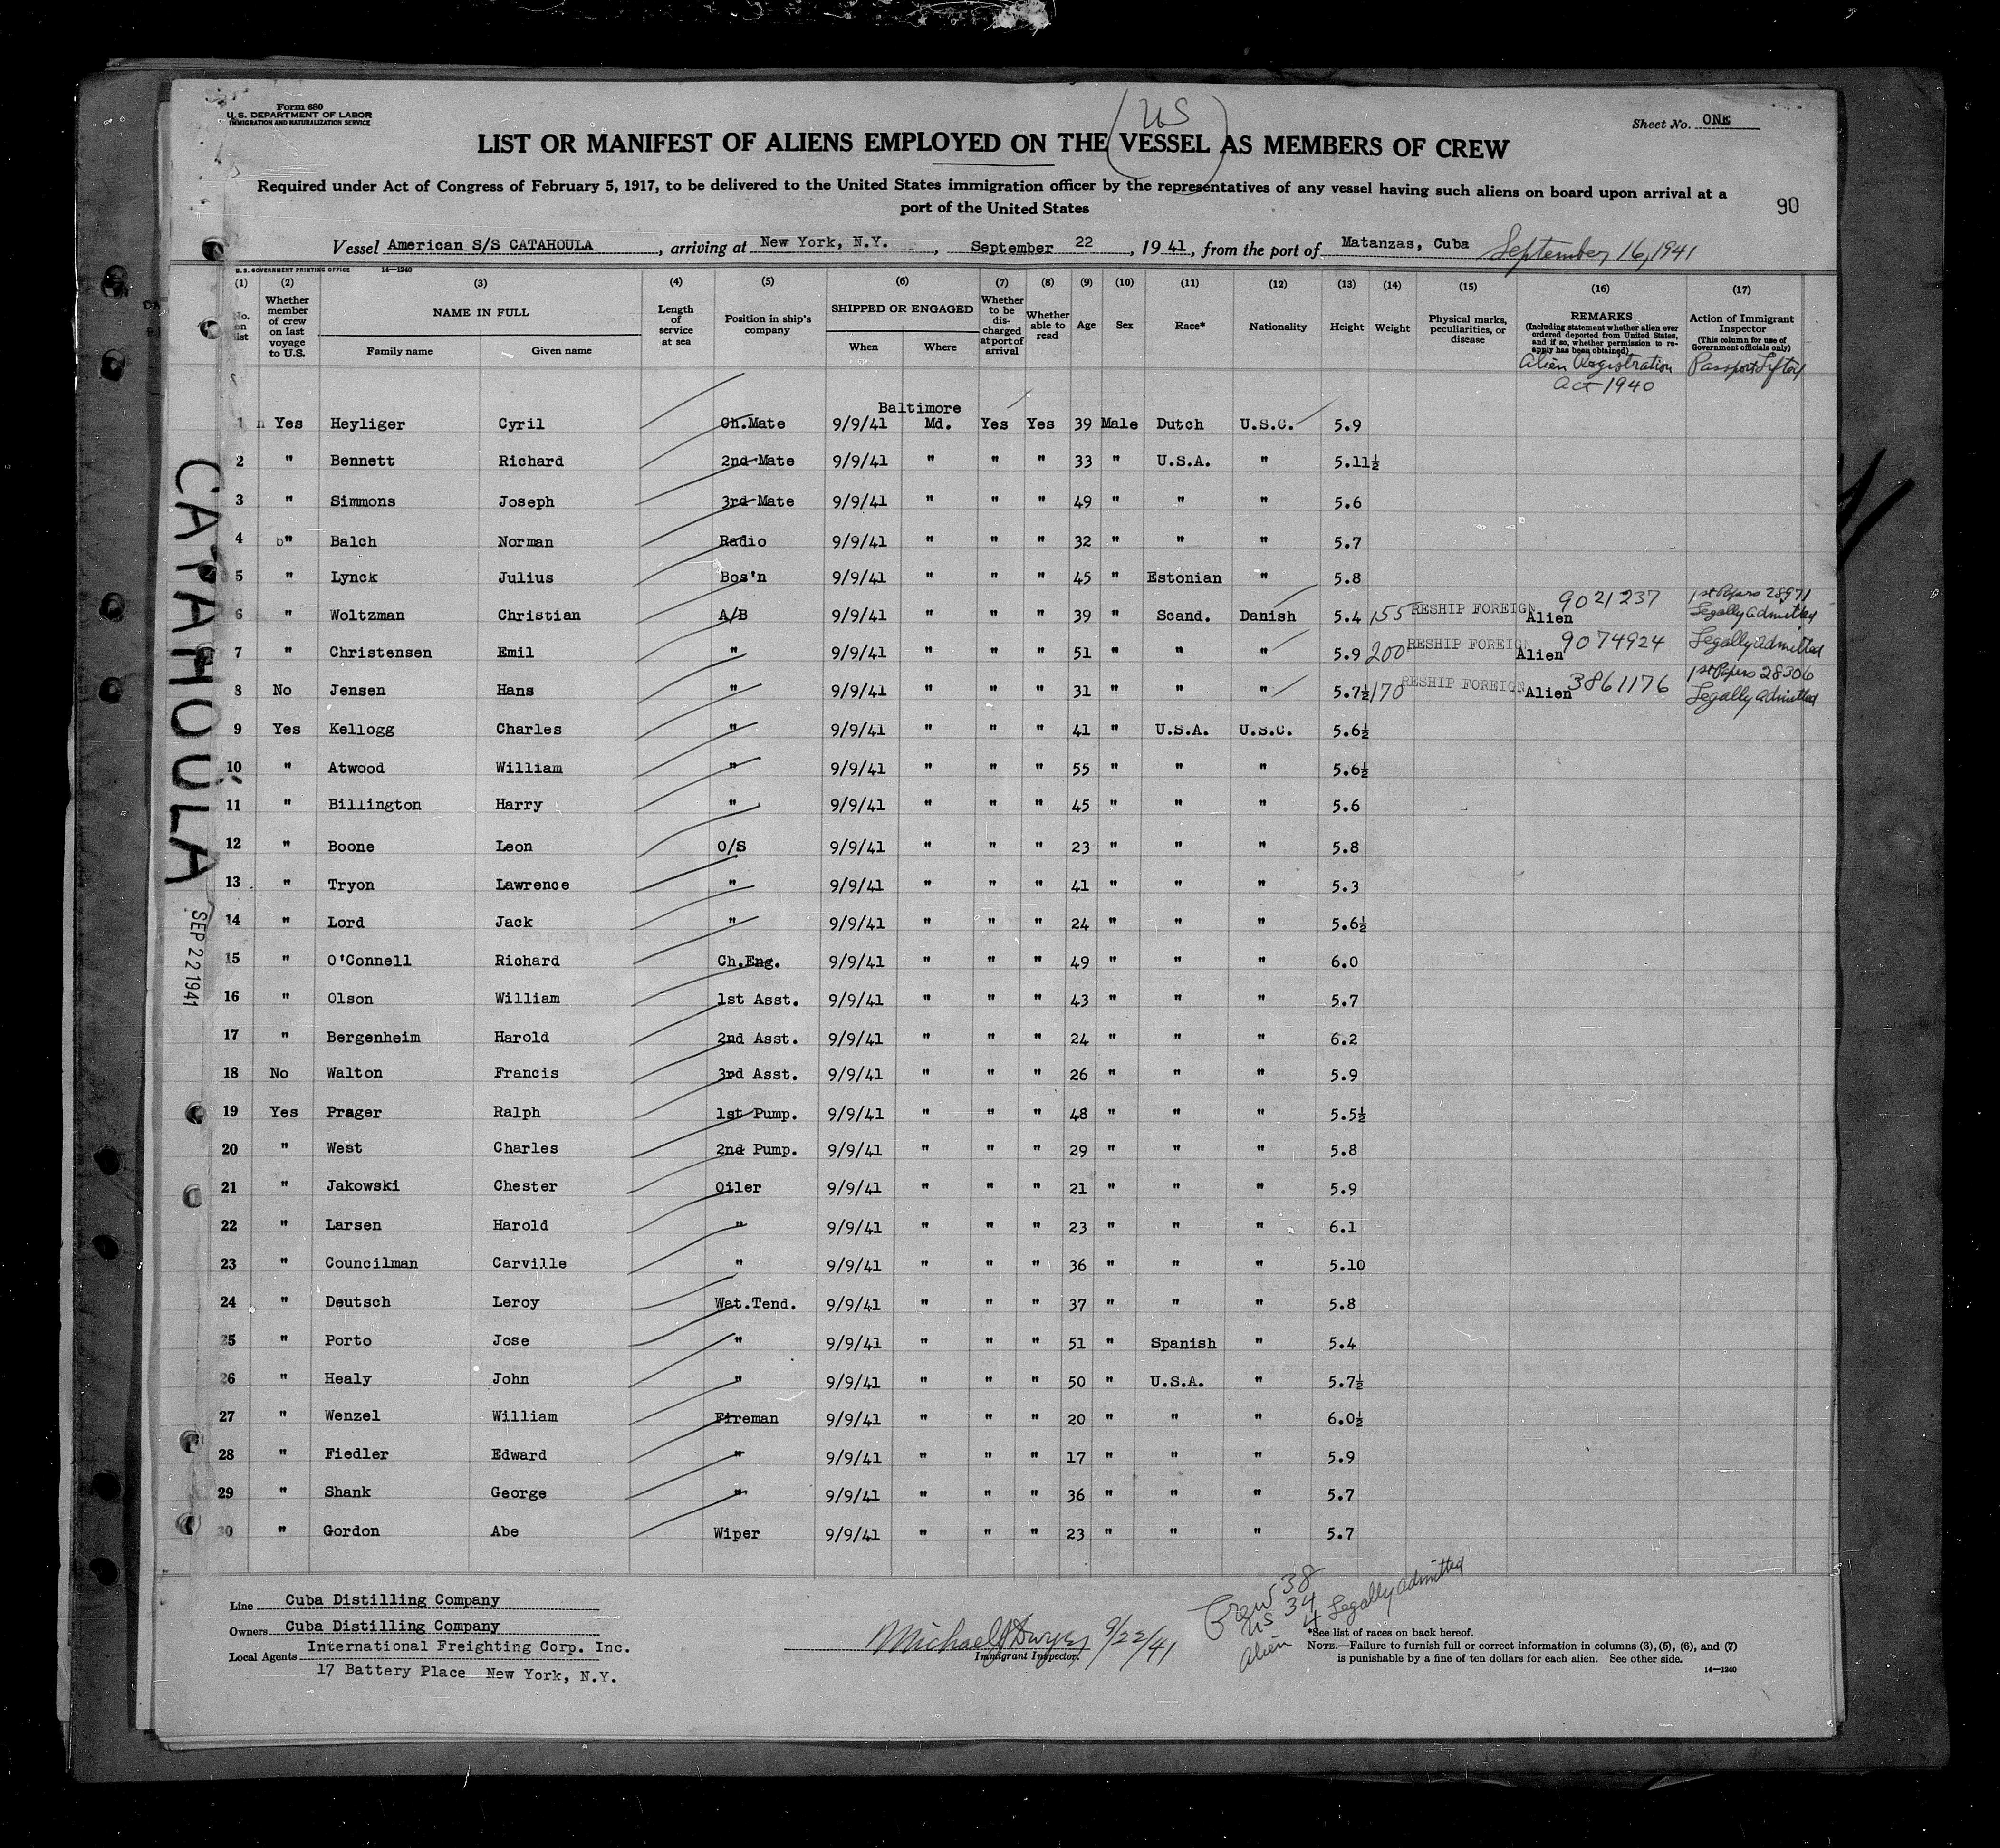 Form 680
U. S. DEPARTMENT OF LABOR
IMMIGRATION AND NATURALIZATION SERVICE
US
Sheet No. ONE
LIST OR MANIFEST OF ALIENS EMPLOYED ON THE VESSEL AS MEMBERS OF CREW
Required under Act of Congress of February 5, 1917, to be delivered to the United States immigration officer by the representatives of any vessel having such aliens on board upon arrival at a
port of the United States
90
Vessel American S/S CATAHOULA, arriving at New York, N.Y., September 22, 1941, from the port of Matanzas, Cuba September 16, 1941
U. S. GOVERNMENT PRINTING OFFICE 14—1240
(1) (2) (3) (4) (5) (6) (7) (8) (9) (10) (11) (12) (13) (14) (15) (16) (17)
No. on list
Whether member of crew on last voyage to U.S.
NAME IN FULL
Family name Given name
Length of service at sea
Position in ship's company
SHIPPED OR ENGAGED
When Where
Whether to be discharged at port of arrival
Whether able to read
Age
Sex
Race*
Nationality
Height
Weight
Physical marks, peculiarities, or disease
REMARKS
(Including statement whether alien ever ordered deported from United States, and if so, whether permission to reapply has been obtained)
Alien Registration
Act 1940
Action of Immigrant Inspector
(This column for use of Government officials only)
Passport Lifted
Baltimore
1 Yes Heyliger Cyril Ch.Mate 9/9/41 Md. Yes Yes 39 Male Dutch U.S.C. 5.9
2 " Bennett Richard 2nd Mate 9/9/41 " " " 33 " U.S.A. " 5.11½
3 " Simmons Joseph 3rd Mate 9/9/41 " " " 49 " " " 5.6
4 " Balch Norman Radio 9/9/41 " " " 32 " " " 5.7
5 " Lynck Julius Bos'n 9/9/41 " " " 45 " Estonian " 5.8
1st Papers 28971
6 " Woltzman Christian A/B 9/9/41 " " " 39 " Scand. Danish 5.4 155 RESHIP FOREIGN Alien 9021237 Legally admitted
7 " Christensen Emil " 9/9/41 " " " 51 " " " 5.9 200 RESHIP FOREIGN Alien 9074924 Legally admitted
1st Papers 28306
8 No Jensen Hans " 9/9/41 " " " 31 " " " 5.7½ 170 RESHIP FOREIGN Alien 3861176 Legally admitted
9 Yes Kellogg Charles " 9/9/41 " " " 41 " U.S.A. U.S.C. 5.6½
10 " Atwood William " 9/9/41 " " " 55 " " " 5.6½
11 " Billington Harry " 9/9/41 " " " 45 " " " 5.6
12 " Boone Leon O/S 9/9/41 " " " 23 " " " 5.8
13 " Tryon Lawrence " 9/9/41 " " " 41 " " " 5.3
14 " Lord Jack " 9/9/41 " " " 24 " " " 5.6½
15 " O'Connell Richard Ch.Eng. 9/9/41 " " " 49 " " " 6.0
16 " Olson William 1st Asst. 9/9/41 " " " 43 " " " 5.7
17 " Bergenheim Harold 2nd Asst. 9/9/41 " " " 24 " " " 6.2
18 No Walton Francis 3rd Asst. 9/9/41 " " " 26 " " " 5.9
19 Yes Prager Ralph 1st Pump. 9/9/41 " " " 48 " " " 5.5½
20 " West Charles 2nd Pump. 9/9/41 " " " 29 " " " 5.8
21 " Jakowski Chester Oiler 9/9/41 " " " 21 " " " 5.9
22 " Larsen Harold " 9/9/41 " " " 23 " " " 6.1
23 " Councilman Carville " 9/9/41 " " " 36 " " " 5.10
24 " Deutsch Leroy Wat.Tend. 9/9/41 " " " 37 " " " 5.8
25 " Porto Jose " 9/9/41 " " " 51 " Spanish " 5.4
26 " Healy John " 9/9/41 " " " 50 " U.S.A. " 5.7½
27 " Wenzel William Fireman 9/9/41 " " " 20 " " " 6.0½
28 " Fiedler Edward " 9/9/41 " " " 17 " " " 5.9
29 " Shank George " 9/9/41 " " " 36 " " " 5.7
30 " Gordon Abe Wiper 9/9/41 " " " 23 " " " 5.7
CATAHOULA
SEP 22 1941
Line Cuba Distilling Company
Owners Cuba Distilling Company
Local Agents International Freighting Corp. Inc.
17 Battery Place New York, N.Y.
Michael J Dwyer 9/22/41
Immigrant Inspector.
Crew 38
US 34
Alien 4 Legally admitted
*See list of races on back hereof.
NOTE.—Failure to furnish full or correct information in columns (3), (5), (6), and (7)
is punishable by a fine of ten dollars for each alien. See other side.
14—1240